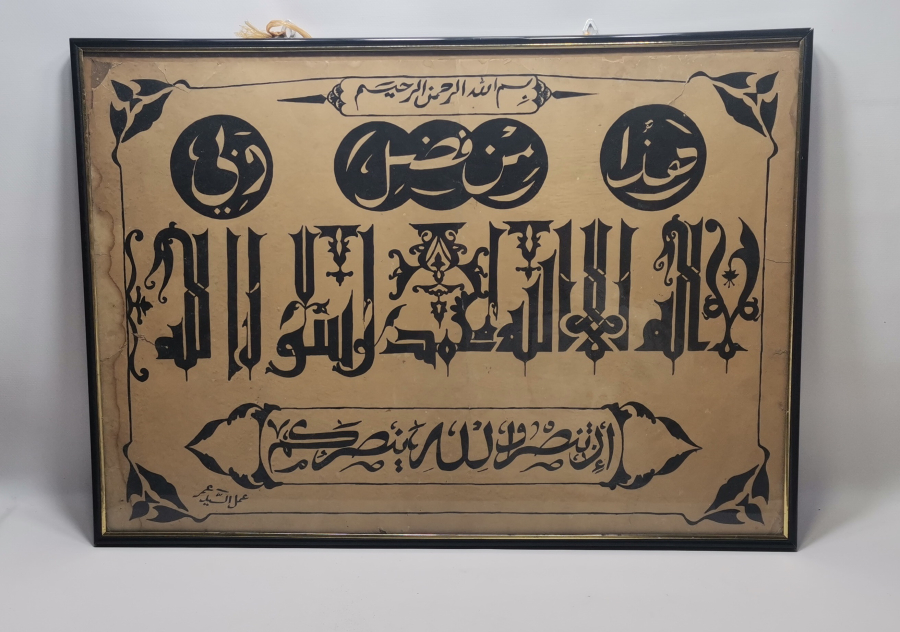 بسم الله الرحمن الرحيم
هٰذا مِنْ فضلِ رَبّي
لا إله إلا الله محمد رسول الله
إن تنصروا الله ينصركم
عمل السَّيد عمر